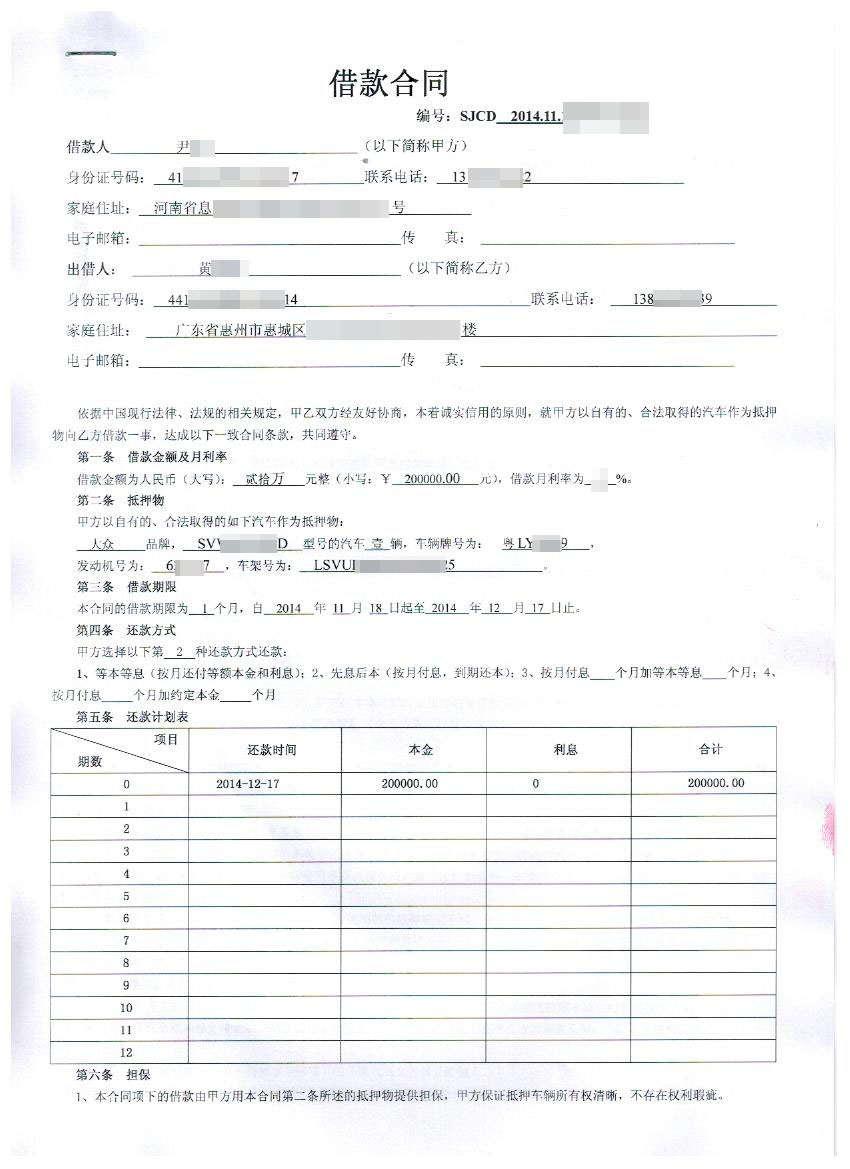 借款合同
编号：SJCD 2014.11.
借款人 尹 （以下简称甲方）
身份证号码： 41 7 联系电话： 13 2
家庭住址： 河南省息 号
电子邮箱： 传 真：
出借人： 黄 （以下简称乙方）
身份证号码： 441 14 联系电话： 138 39
家庭住址： 广东省惠州市惠城区 楼
电子邮箱： 传 真：
依据中国现行法律、法规的相关规定，甲乙双方经友好协商，本着诚实信用的原则，就甲方以自有的、合法取得的汽车作为抵押
物向乙方借款一事，达成以下一致合同条款，共同遵守。
第一条 借款金额及月利率
借款金额为人民币（大写）： 贰拾万 元整（小写：￥ 200000.00 元），借款月利率为 %。
第二条 抵押物
甲方以自有的、合法取得的如下汽车作为抵押物：
大众 品牌， SV D 型号的汽车 壹 辆，车辆牌号为： 粤LY 9 ，
发动机号为： 6 7 ，车架号为： LSVU 5 。
第三条 借款期限
本合同的借款期限为 1 个月，自 2014 年 11 月 18 日起至 2014 年 12 月 17 日止。
第四条 还款方式
甲方选择以下第 2 种还款方式还款：
1、等本等息（按月还付等额本金和利息）；2、先息后本（按月付息，到期还本）；3、按月付息____个月加等本等息____个月；4、
按月付息_____个月加约定本金_____个月
第五条 还款计划表
项目 期数 还款时间 本金 利息 合计
0 2014-12-17 200000.00 0 200000.00
1
2
3
4
5
6
7
8
9
10
11
12
第六条 担保
1、本合同项下的借款由甲方用本合同第二条所述的抵押物提供担保，甲方保证抵押车辆所有权清晰，不存在权利瑕疵。